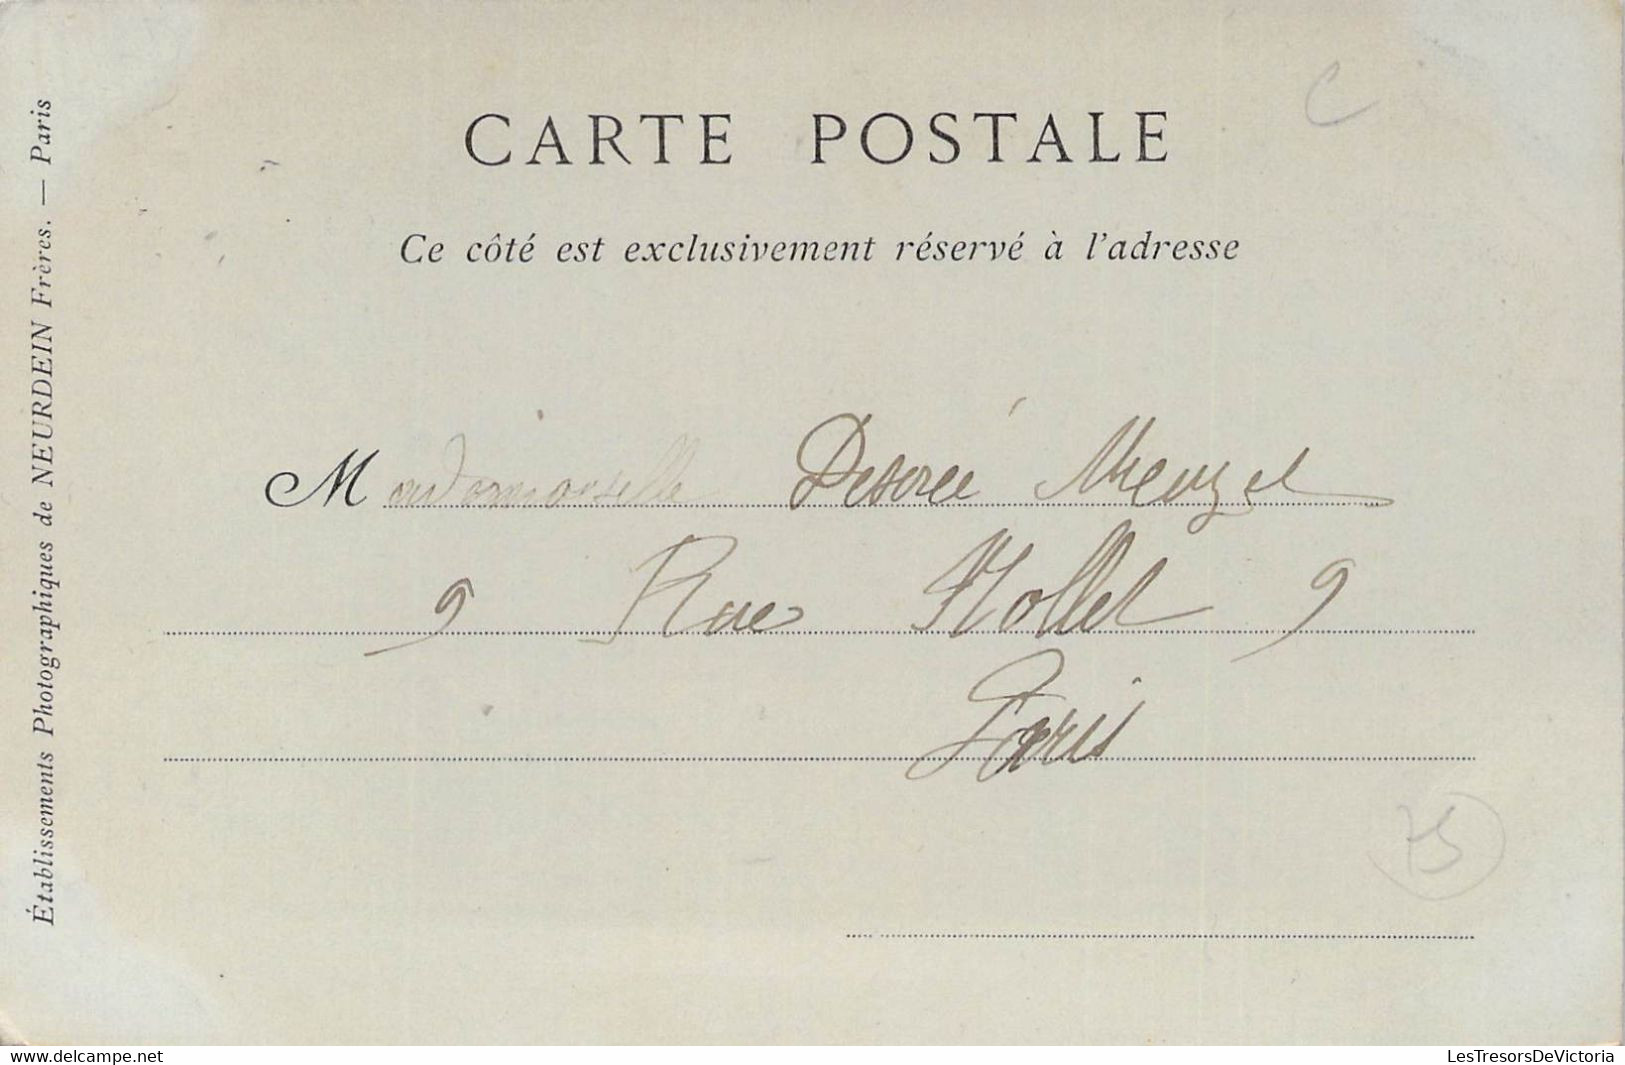 CARTE POSTALE
Ce côté est exclusivement réservé à l'adresse
Mademoiselle Desirée Menzel
9 Rue Nollet 9
Paris
75
C
Établissements Photographiques de NEURDEIN Frères. — Paris
www.delcampe.net
LesTresorsDeVictoria